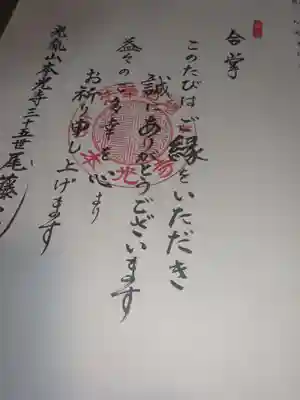 合掌
このたびはご縁をいただき
誠にありがとうございます
益々のご多幸を心より
お祈り申し上げます
山本光寺三十五世尾藤